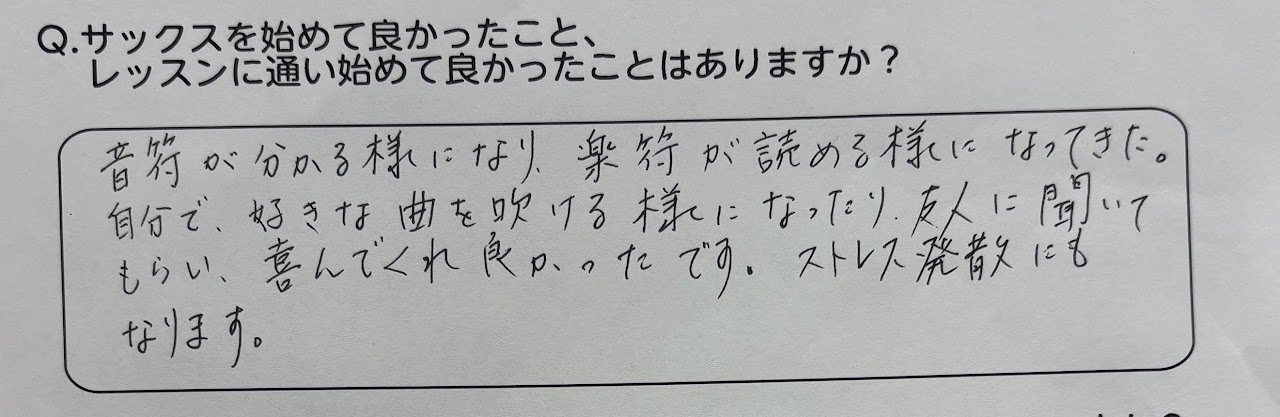 Q.サックスを始めて良かったこと、
レッスンに通い始めて良かったことはありますか？
音符が分かる様になり、楽符が読める様になってきた。
自分で、好きな曲を吹ける様になったり、友人に聞いて
もらい、喜んでくれ良かったです。ストレス発散にも
なります。